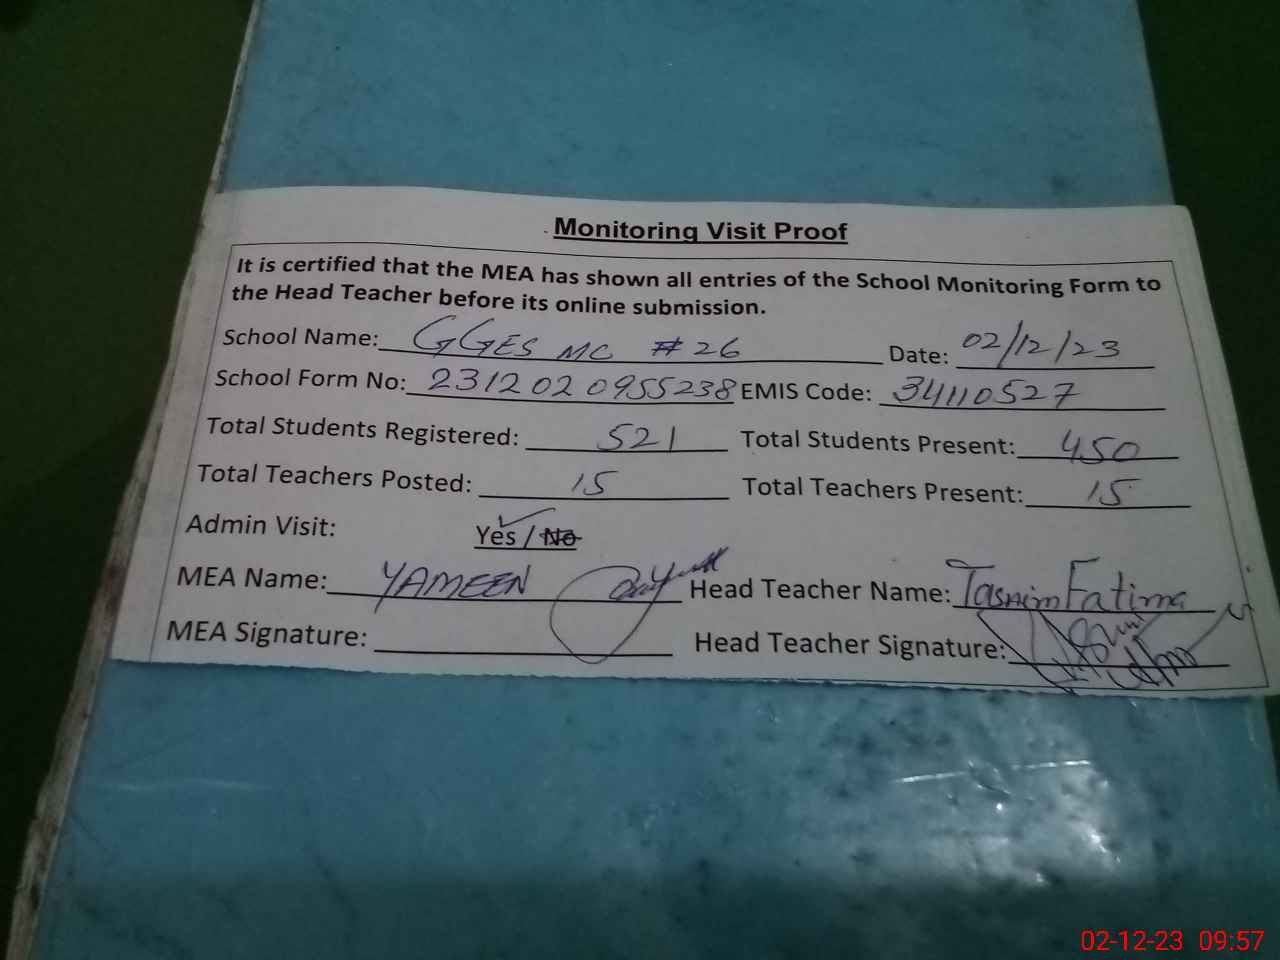 Monitoring Visit Proof
It is certified that the MEA has shown all entries of the School Monitoring Form to
the Head Teacher before its online submission.
School Name: GGES MC # 26 Date: 02/12/23
School Form No: 2312020955238 EMIS Code: 34110527
Total Students Registered: 521 Total Students Present: 450
Total Teachers Posted: 15 Total Teachers Present: 15
Admin Visit: Yes / No
MEA Name: YAMEEN Head Teacher Name: Tasnim Fatima
MEA Signature: Head Teacher Signature:
02-12-23 09:57